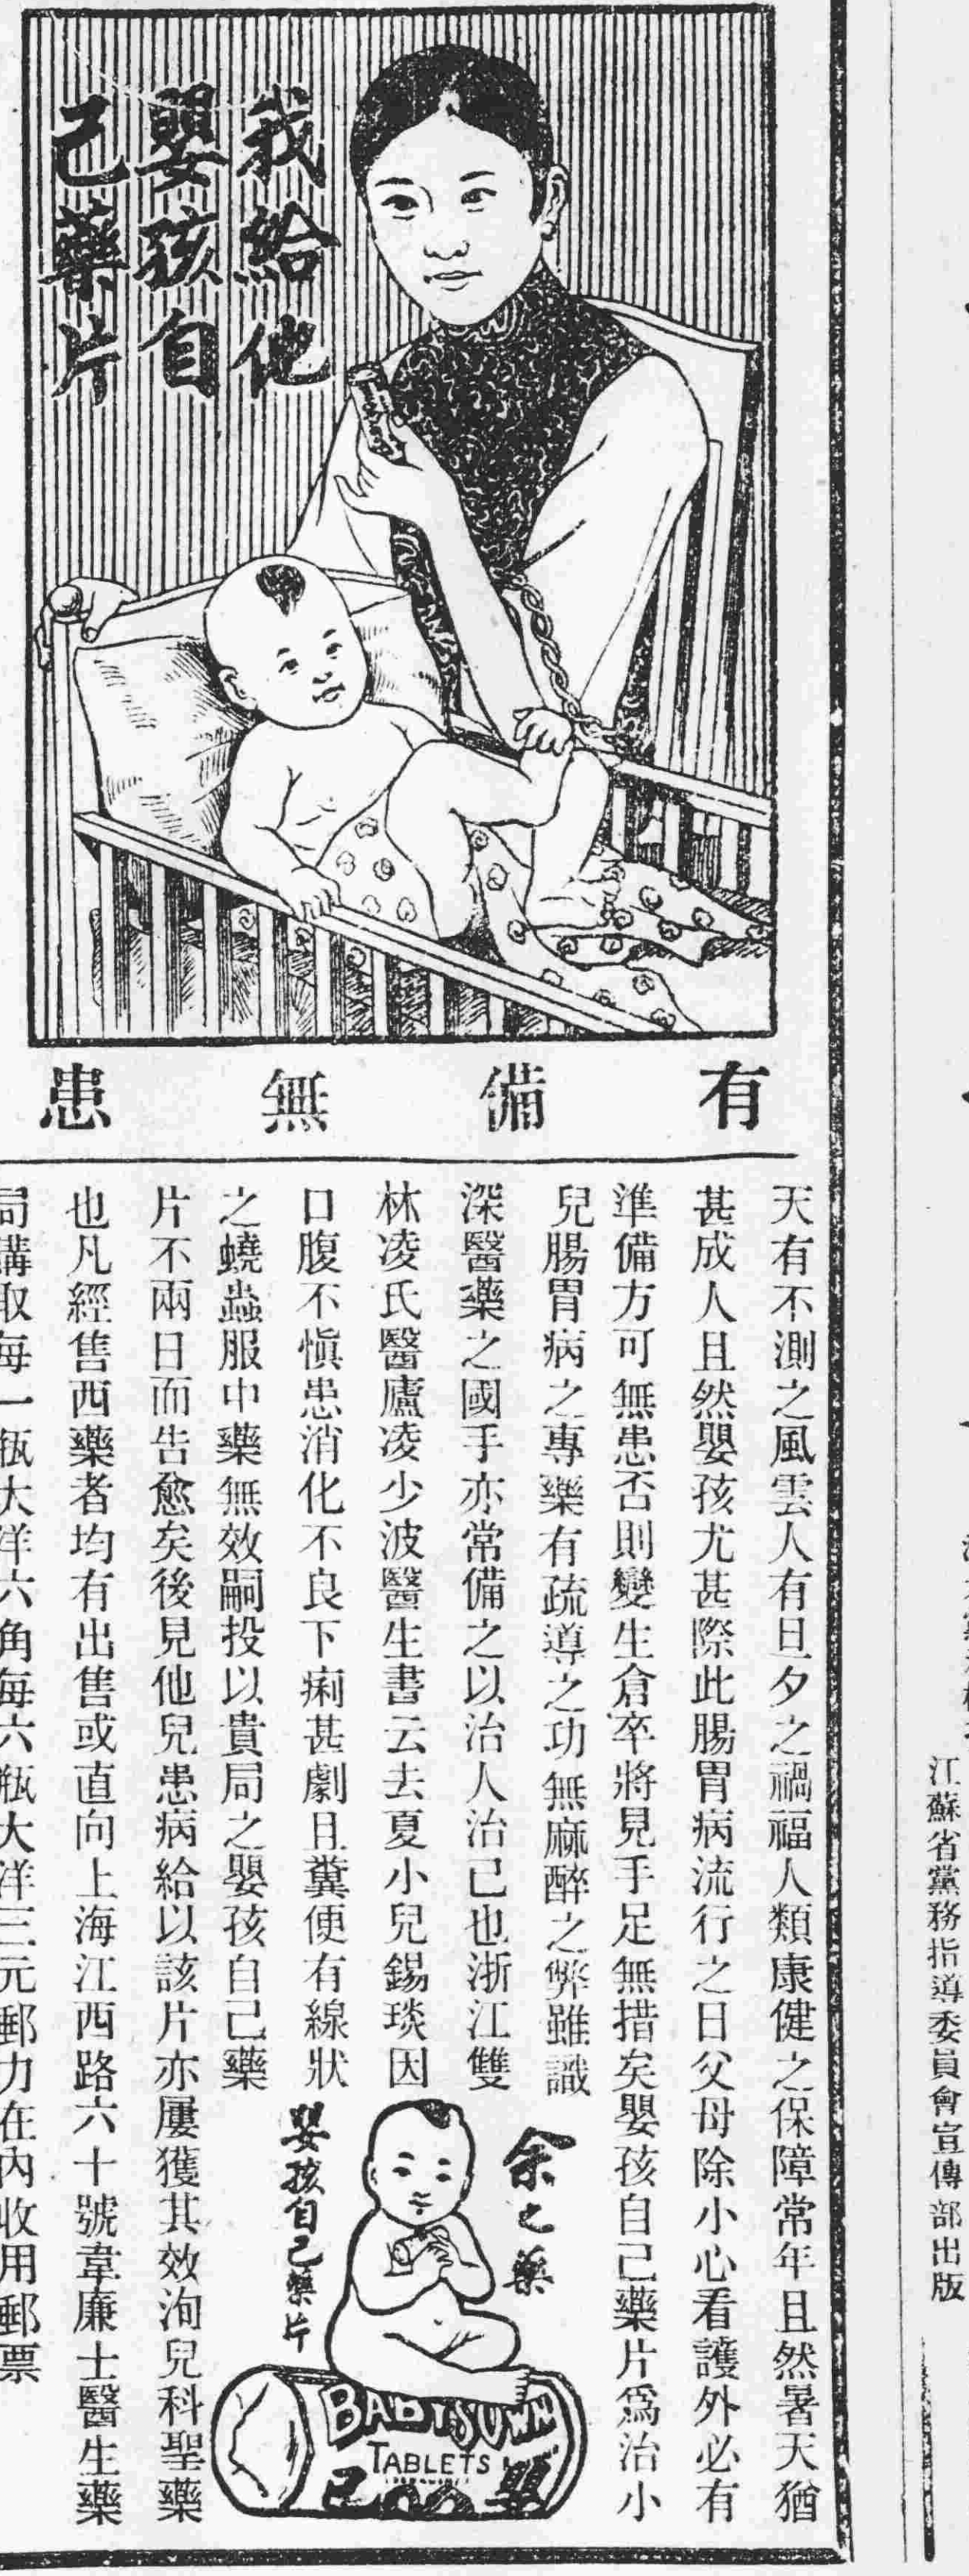 我給他
嬰孩自
己藥片
有備無患
天有不測之風雲人有旦夕之禍福人類康健之保障常年且然暑天猶
甚成人且然嬰孩尤甚際此腸胃病流行之日父母除小心看護外必有
準備方可無患否則變生倉卒將見手足無措矣嬰孩自己藥片爲治小
兒腸胃病之專藥有疏導之功無麻醉之弊雖識
深醫藥之國手亦常備之以治人治己也浙江雙
林凌氏醫廬凌少波醫生書云去夏小兒錫琰因
口腹不愼患消化不良下痢甚劇且糞便有線狀
之蟯蟲服中藥無效嗣投以貴局之嬰孩自己藥
片不兩日而告愈矣後見他兒患病給以該片亦屢獲其效洵兒科聖藥
也凡經售西藥者均有出售或直向上海江西路六十號韋廉士醫生藥
局購取每一瓶大洋六角每六瓶大洋三元郵力在內收用郵票
余之藥
嬰孩自己藥片
BABY'S OWN
TABLETS
嬰
己
江蘇省黨務指導委員會宣傳部出版